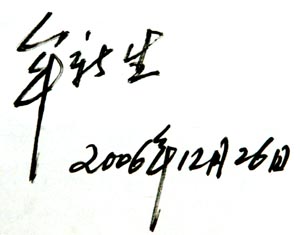 牟新生
2006年12月26日